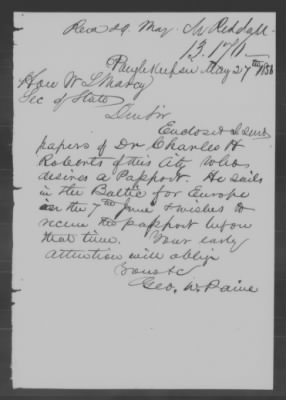 Recd 29 May Mr Reddall
13.170
Po'keepsie May 27th 1856
Hon W L Marcy
Sec of State
Dear Sir
Enclosed I send
papers of Dr Charles H
Roberts of this City who
desires a Passport. He sails
in the Baltic for Europe
on the 7th June & wishes to
receive the passport before
that time. Your early
attention will oblige
Yours &c
Geo. W. Paine